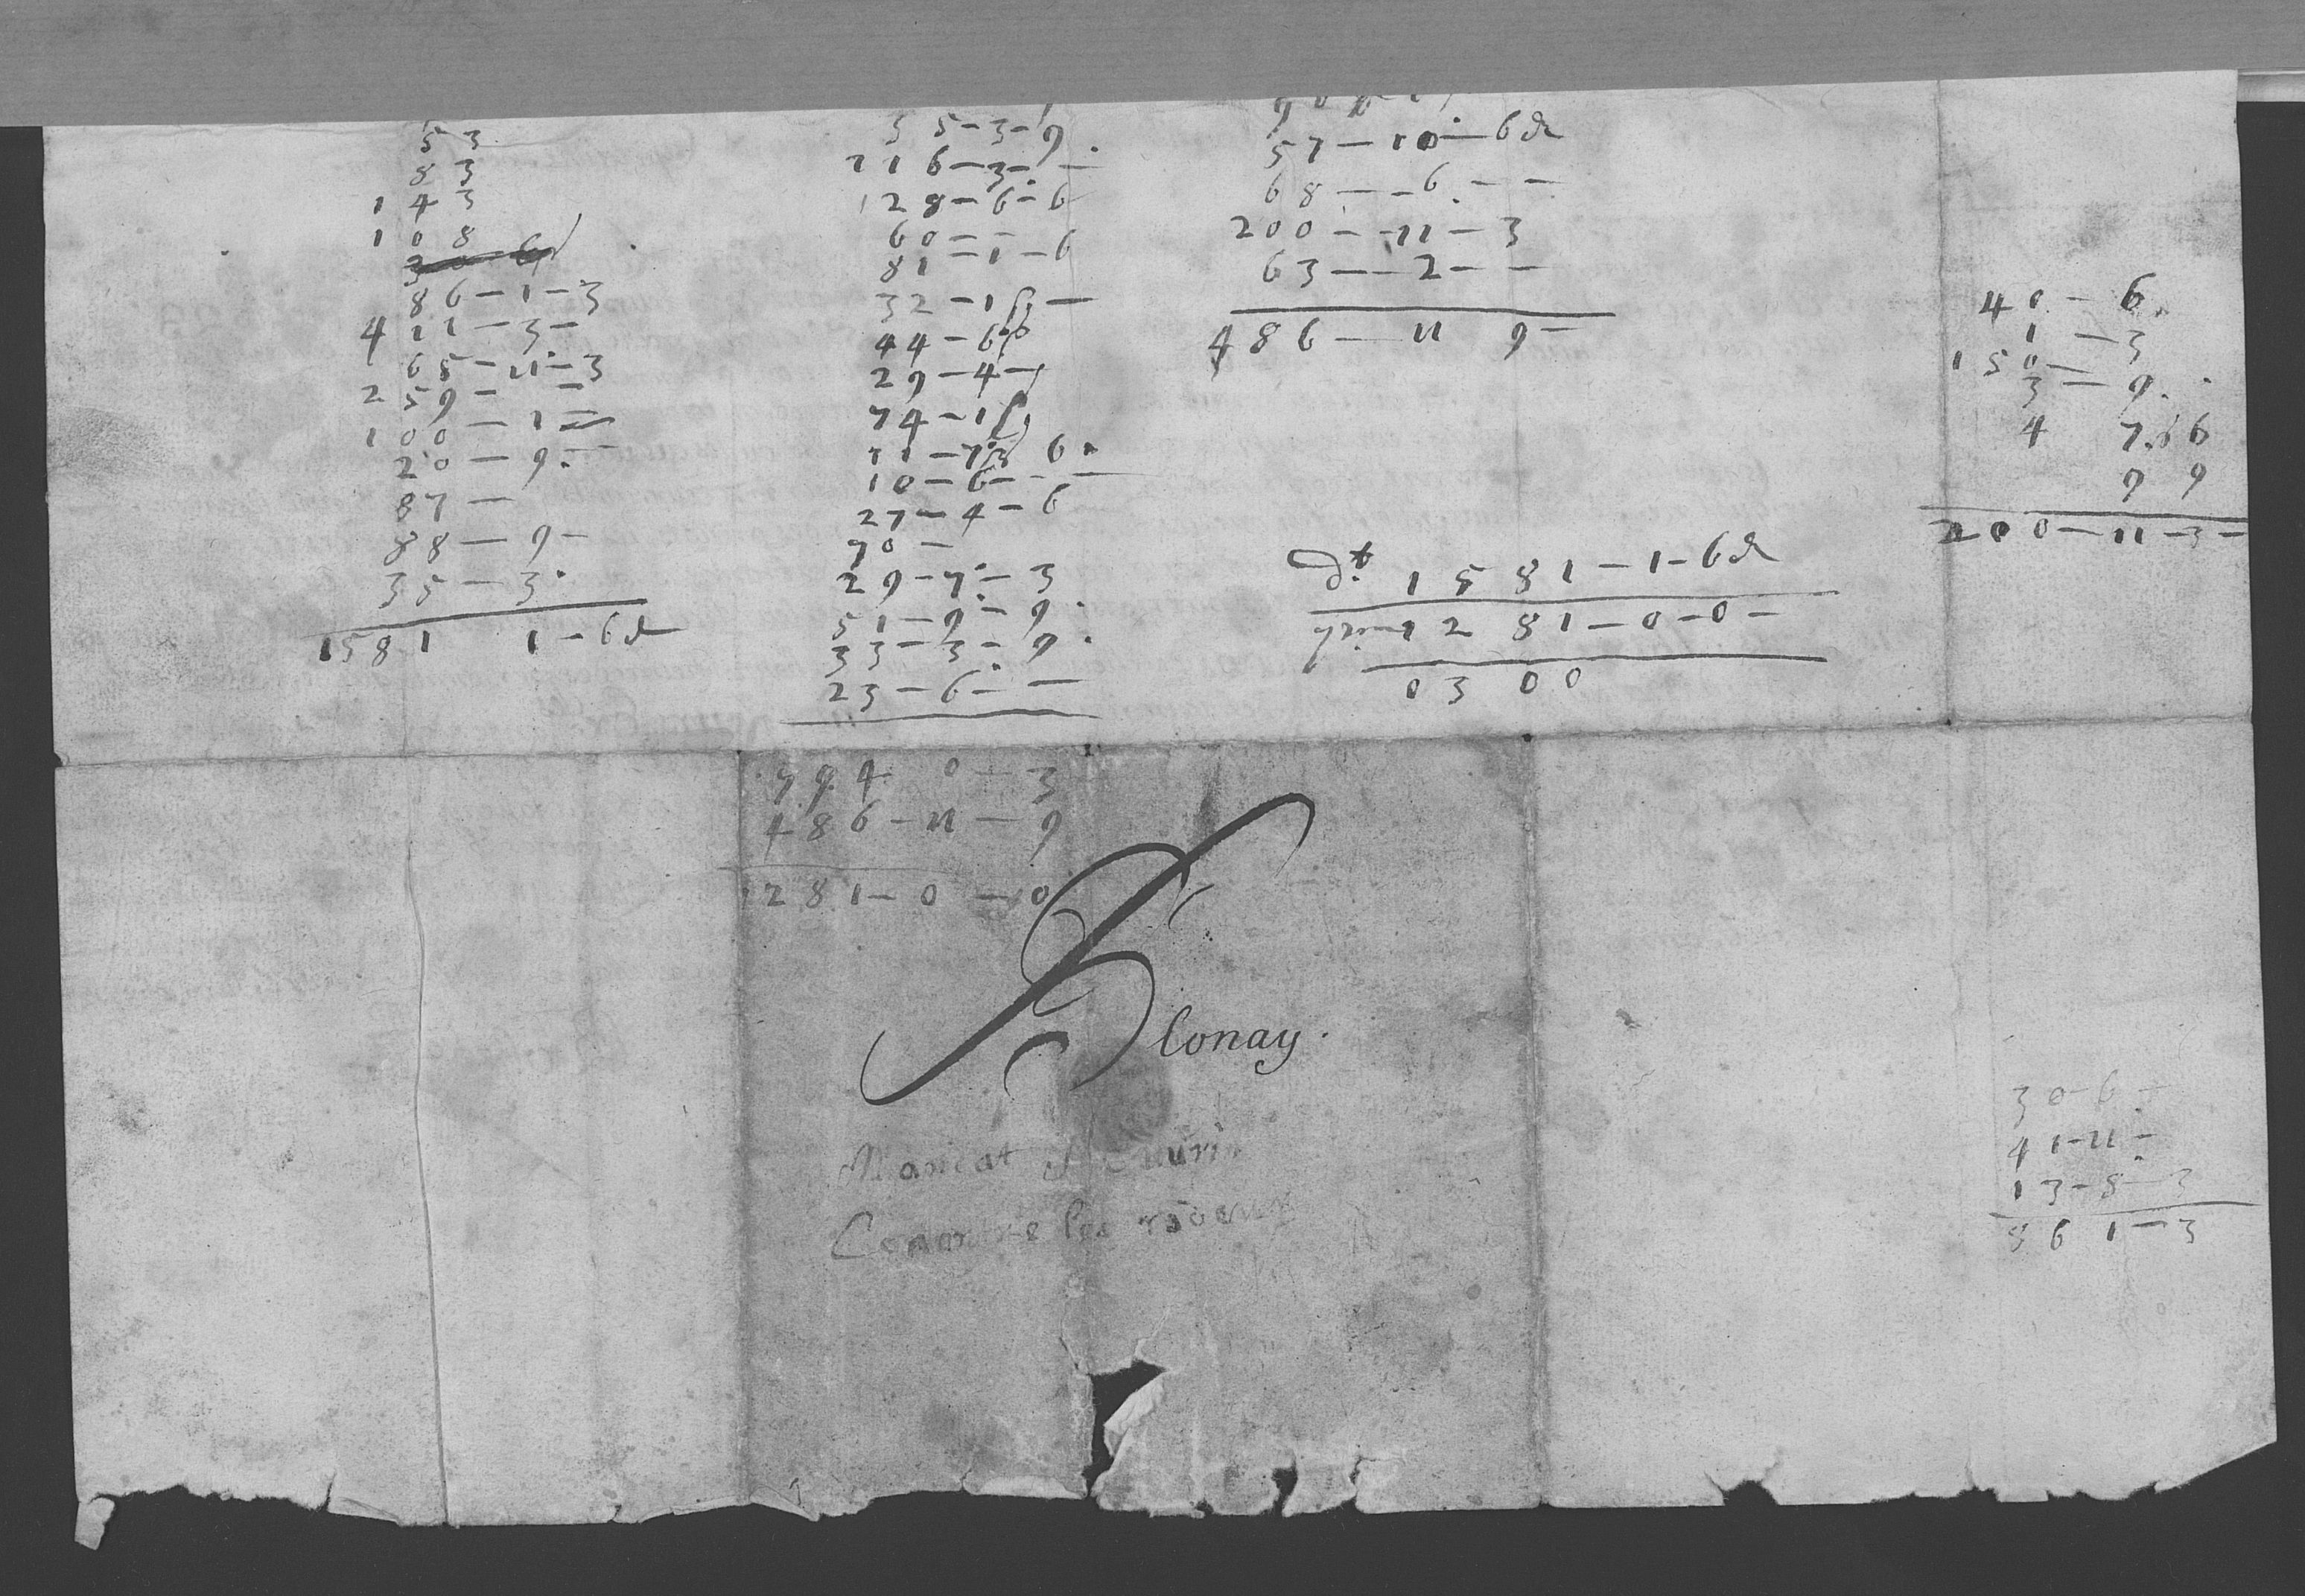 53
83
143
108
86 — 1 — 3
411 — 3 —
65 — 11 — 3
259 — —
100 — 1 —
20 — 9 . —
87 —
88 — 9 —
35 — 3 .
1581 1 — 6 d
35 — 3 — 9
116 — 3 — —
128 — 6 — 6
60 — —
81 — 1 — 6
32 — 1 —
44 — 6
29 — 4 —
74 — 1
6 .
10 — 6 — —
27 — 4 — 6
70 —
29 — 7 — 3
51 — 9 — 9 .
33 — 3 — 9 .
23 — 6 — —
794 0 — 3
486 — 11 — 9
1281 — 0 — 0
57 — 10 — 6 d
68 — — 6 . — —
200 — 11 — 3
63 — 2 — —
486 — 11 9 —
1581 — 1 — 6 d
1281 — 0 — 0 —
0300
40 — 6 .
1 — 3
150 —
3 — 9 .
4 7 . 6
9 9
200 — 11 — 3 —
Blonay .
les
30 — 6 —
41 — 11 —
13 — 8 — 3
86 1 — 3